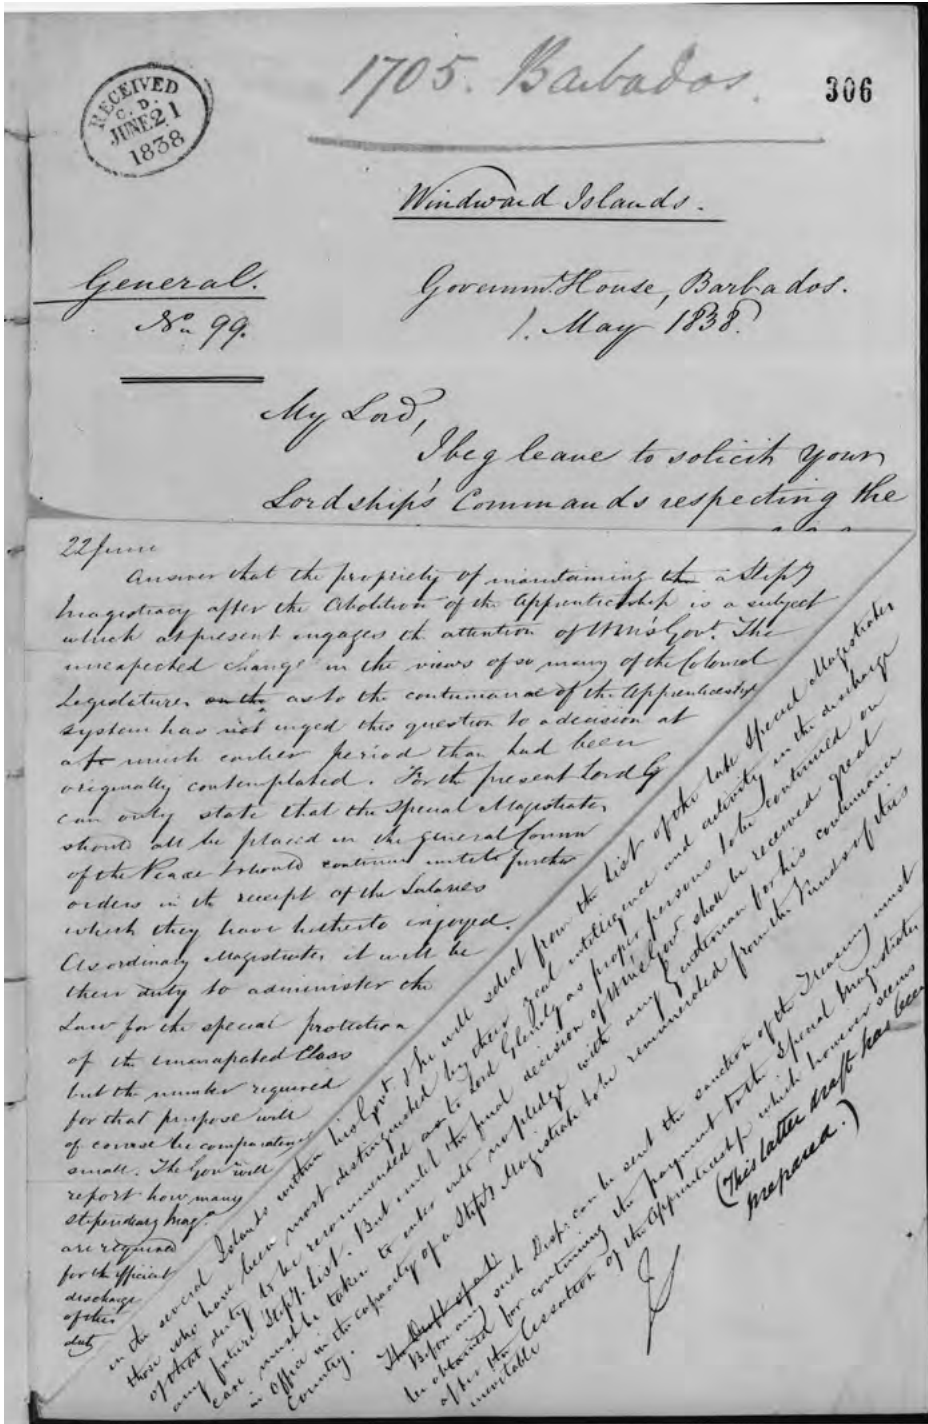 RECEIVED
C. D.
JUNE 21
1838
1705. Barbados.
306
Windward Islands.
General.
No. 99.
Governmt. House, Barbados.
1. May 1838.
My Lord,
I beg leave to solicit your
Lordship's Commands respecting the
22 June
Answer that the propriety of maintaining the a Stipy
Magistracy after the Abolition of the Apprenticeship is a subject
which at present engages the attention of HM's Govt. The
unexpected change in the views of so many of the Colonial
Legislatures on the as to the continuance of the Apprenticeship
system has not urged this question to a decision at
a much earlier period than had been
originally contemplated. For the present Lord G
can only state that the Special Magistrates
should all be placed in the general Commn
of the Peace & should continue until further
orders in the receipt of the Salaries
which they have hitherto enjoyed.
As ordinary Magistrates it will be
their duty to administer the
Law for the special protection
of the emancipated Class
but the number required
for that purpose will
of course be comparatively
small. The Govr will
report how many
Stipendiary Mags.
are required
for the efficient
discharge
of this
duty
in the several Islands within his Govt. & he will select from the List of the late Special Magistrates
those who have been most distinguished by their zeal intelligence and activity in the discharge
of that duty to be recommended as to Lord Glenelg as proper persons to be continued on
any future Stipy. List. But until the final decision of HM's Govt shall be received great
care must be taken to enter into no pledge with any Gentleman for his continuance
in Office in the capacity of a Stipy Magistrate to be remunerated from the Funds of this
Country.
The Draft
Before any such Disp: can be sent the sanction of the Treasury must
be obtained for continuing the payment to the Special Magistrates
after the Cessation of the Apprenticeship which however seems
inevitable
(This latter draft has been
prepared.)
JS